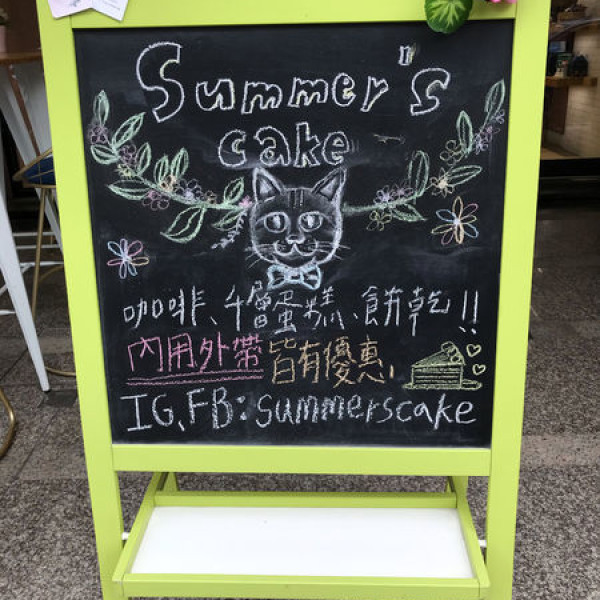 Summer's
cake
咖啡、千層蛋糕、餅乾!!
內用外帶皆有優惠,
IG、FB:summerscake